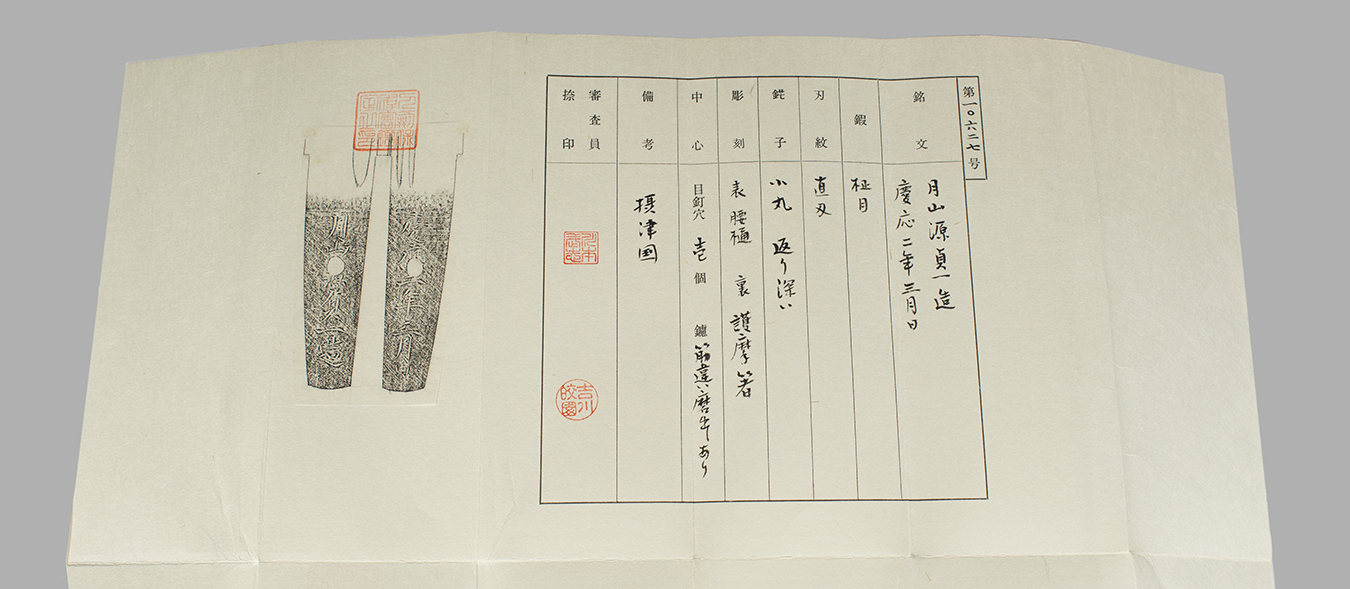 第一〇六二七号
銘文
月山源貞一造
慶応二年三月日
鍛
柾目
刃紋
直刃
鋩子
小丸 返り深い
彫刻
表腰樋 裏護摩箸
中心
目釘穴 壱個 鑢 筋違 磨出あり
備考
摂津国
審査員
捺印
吉川皎園
慶応二年三月日
月山源貞一造